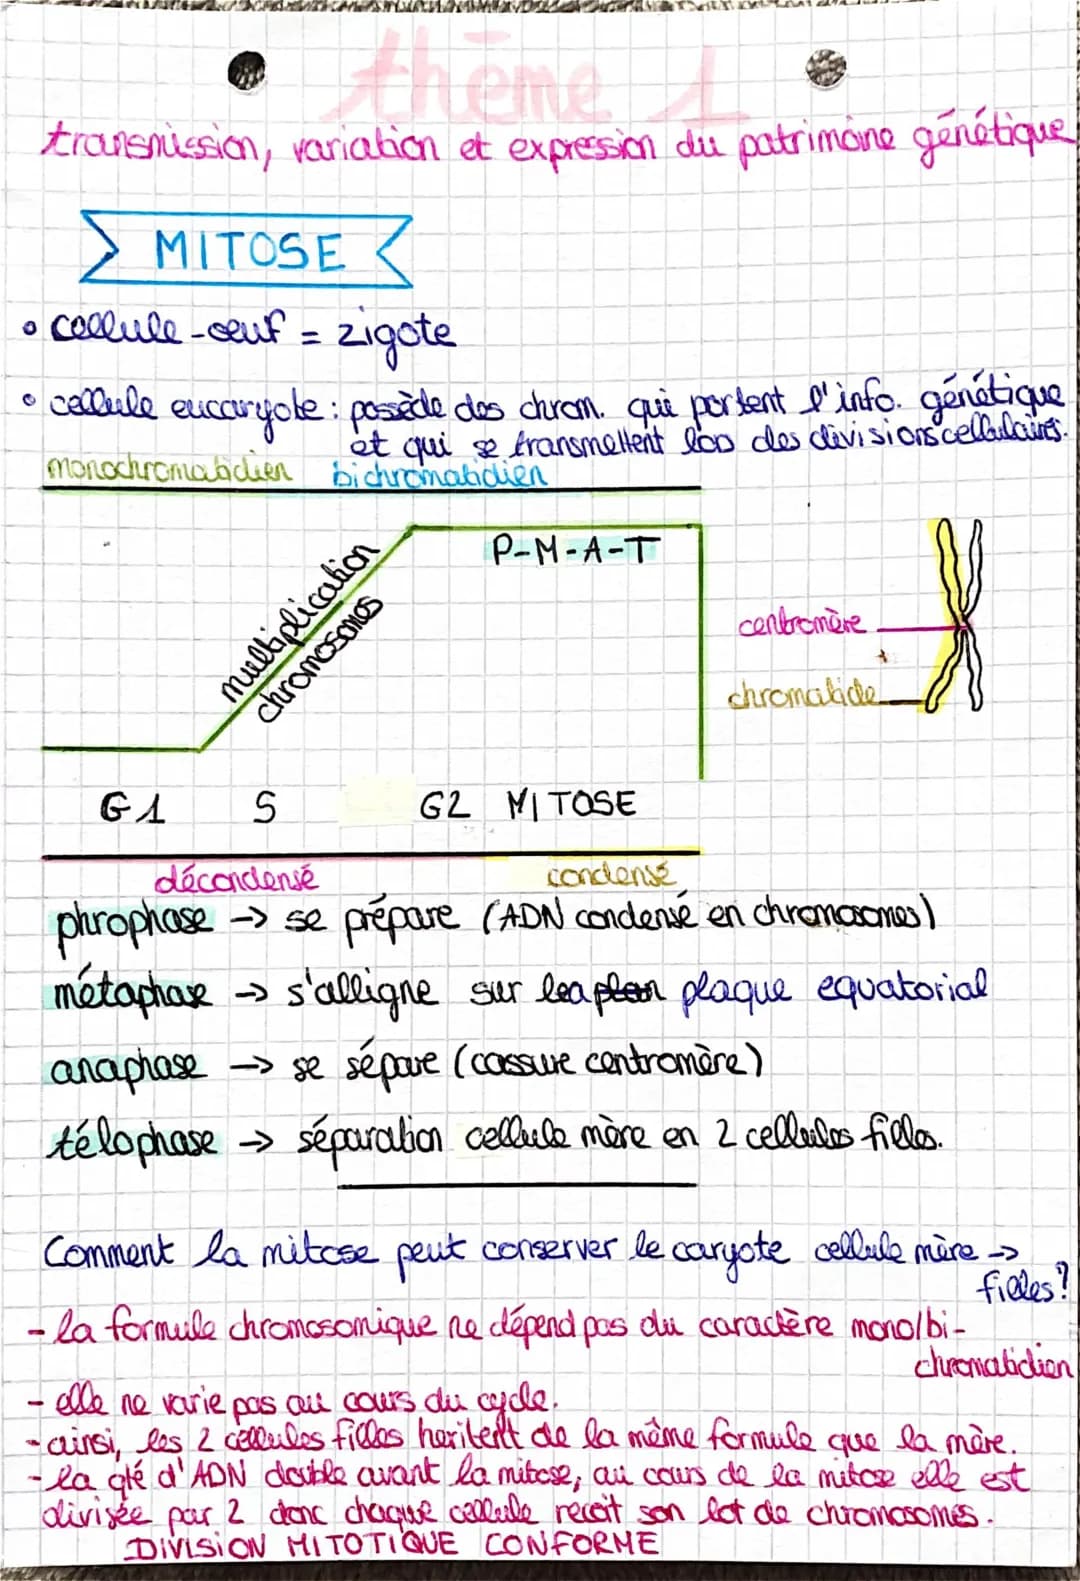 thème 1
transmission, variation et expression du patrimoine génétique
MITOSE
• cellule-oeuf = zigote
• cellule eucaryote : posède des chrom. qui portent l'info. génétique
et qui se transmettent los des divisions cellulaires.
monochromatidien bichromatidien
P-M-A-T
multiplication
chromosomes
centromère
chromatide
G1 S G2 MITOSE
décondensé condensé
phrophase -> se prépare (ADN condensé en chromosomes)
métaphase -> s'alligne sur lea plan plaque equatorial
anaphase -> se sépare (cassure centromère)
télophase -> séparation cellule mère en 2 cellules filles.
Comment la mitose peut conserver le caryote cellule mère ->
filles?
- la formule chromosomique ne dépend pas du caractère mono/bi-
chromatidien
- elle ne varie pas au cours du cycle.
- ainsi, les 2 cellules filles heritent de la même formule que la mère.
- la qté d'ADN double avant la mitose, au cours de la mitose elle est
divisée par 2 donc chaque cellule recoit son lot de chromosomes.
DIVISION MITOTIQUE CONFORME